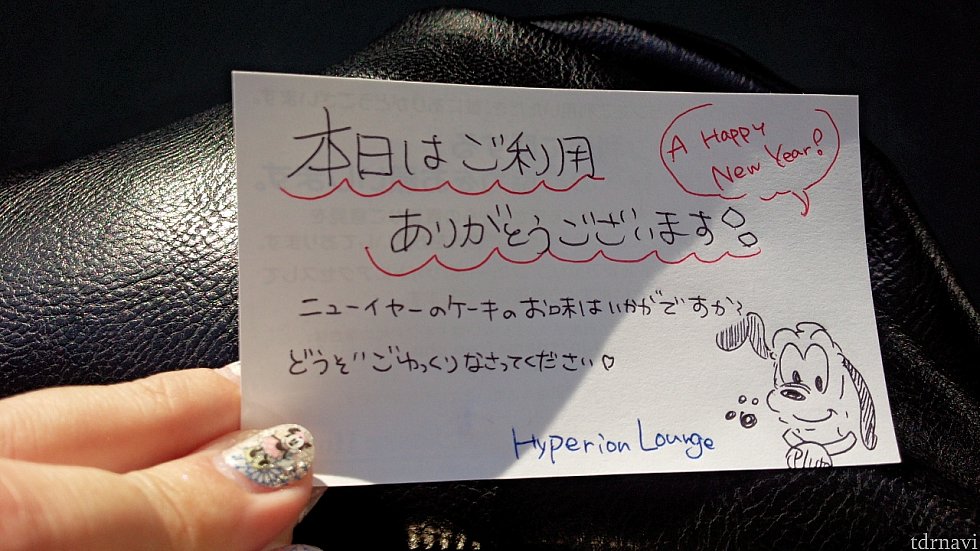 本日はご利用
ありがとうございます!
A Happy
New Year!
ニューイヤーのケーキのお味はいかがですか?
どうぞごゆっくりなさってください♡
Hyperion Lounge
Pluto
tdrnavi